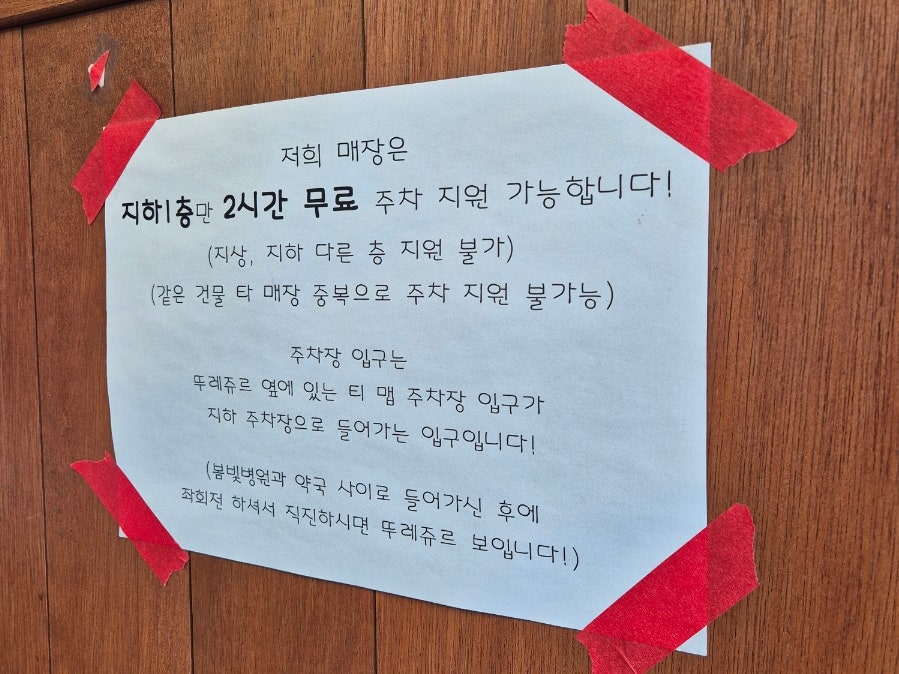 저희 매장은
지하1층만 2시간 무료 주차 지원 가능합니다!
(지상, 지하 다른 층 지원 불가)
(같은 건물 타 매장 중복으로 주차 지원 불가능)
주차장 입구는
뚜레쥬르 옆에 있는 티 맵 주차장 입구가
지하 주차장으로 들어가는 입구입니다!
(봄빛병원과 약국 사이로 들어가신 후에
좌회전 하셔서 직진하시면 뚜레쥬르 보입니다!)